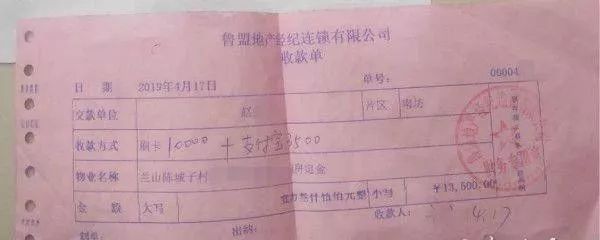 鲁盟地产经纪连锁有限公司
收款单
日 期 2019年4月17日 单号: 00004
交款单位 赵 片区 南坊
收款方式 刷卡 10000 + 支付宝3500
物业名称 兰山陈城子村 房定金
金 额 大写 壹万叁仟伍佰元整 小写 ¥13,500.00
收款人: 4.17
制单: 出纳: